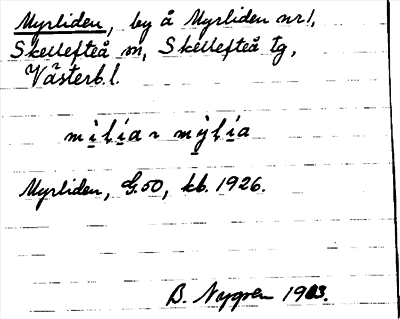 Myrliden, by å Myrliden nr 1,
Skellefteå m, Skellefteå tg,
Västerb. l.
mi̱li̱a ~ my̱li̱a
Myrliden, G.50, kb. 1926.
B. Nygren